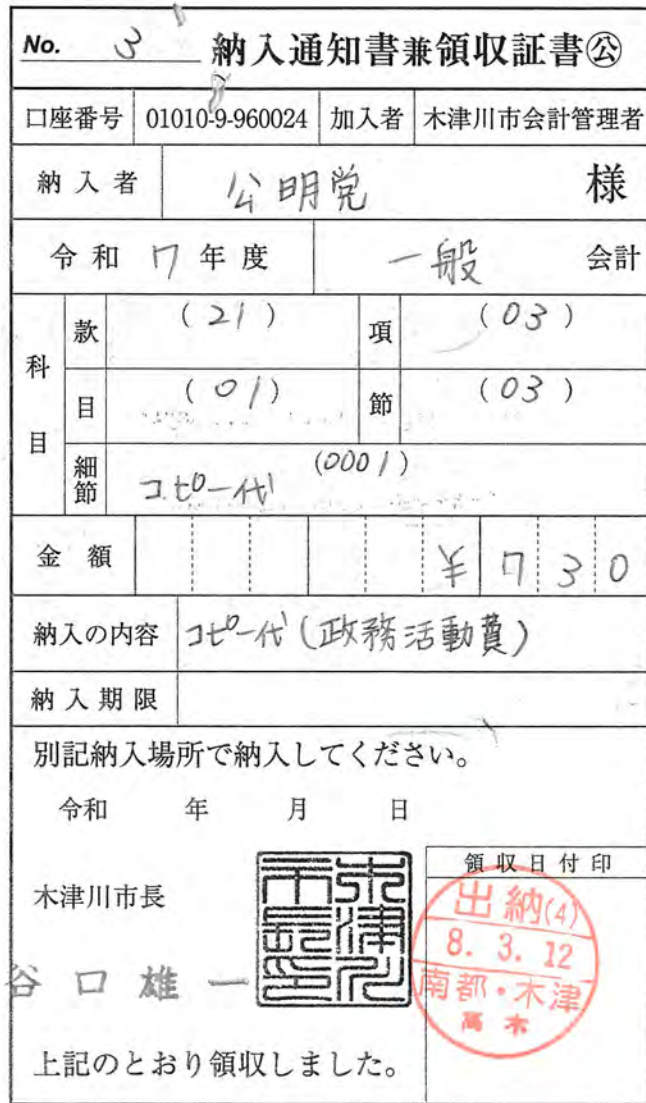 No. 3 納入通知書兼領収証書㊢
口座番号 01010-9-960024 加入者 木津川市会計管理者
納入者 公明党 様
令和 7 年度 一般 会計
科目 款 (21) 項 (03)
目 (01) 節 (03)
細節 (0001)
コピー代
金額 ¥730
納入の内容 コピー代(政務活動費)
納入期限
別記納入場所で納入してください。
令和 年 月 日
木津川市長
谷口雄一
木津川市長之印
領収日付印
出納(4)
8. 3. 12
南都・木津
高木
上記のとおり領収しました。